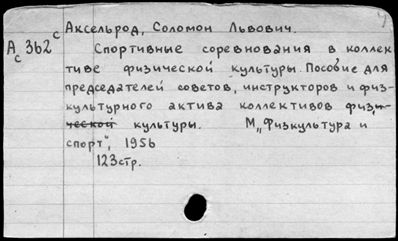 Аксельрод, Соломон Львович.
А 362 с
с
Спортивные соревнования в коллек
тиве физической культуры. Пособие для
председателей советов, инструкторов и физ-
культурного актива коллективов физ.
ческой культуры. М., „Физкультура и
спорт", 1956
123стр.